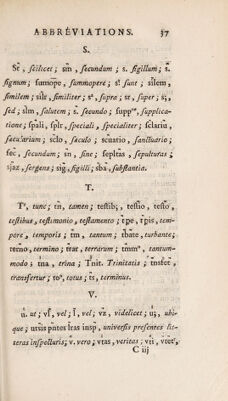 ABBRÉVIATIONS. 37
S.
Sc̃, scilicet; sm̃, secundum; s. sigillum; s̃.
signum; sumop̃e, summopere; st̃ sunt; silem,
similem; silr, similiter; sª, supra; sr, super; s;,
sed; slm, salutem; s̃. secundo; suppᵒⁿ, supplica-
tione; spali, splr, speciali, specialiter; sclariũ,
sæcularium; sclo, sæculo; scuario, sanctuario;
sec̃, secundum; sñ, sine; sepltãs, sepulturas;
sjãz, sergens; sig̃, sigilli; sba, substantia.
T.
Tᶜ, tunc; tm̃, tamen; testib;, testio, testo,
testibus, testimonio, testamento; tp̃e, tp̃is, tem-
pore, temporis; tm̃, tantum; tbate, turbante;
termo, termino; tr̃at, terrarum; tmmᵒ, tantum-
modo; tna, trina; Tnit. Trinitatis; tnsfert̃,
transfertur; toˢ, totus; ts, terminus.
V.
u. ut; vl̃, vel; l̃, vel; vz̃, videlicet; u;, ubi-
que; utsis pñtes lras insp̃, universis presentes lit-
teras inspecturis; v. vero; vtas, veritas; vri, voct̃,
C iij